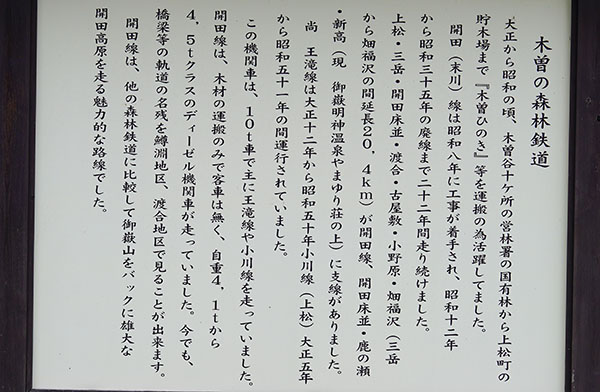 木曽の森林鉄道
大正から昭和の頃、木曽谷十ケ所の営林署の国有林から上松町の
貯木場まで『木曽ひのき』等を運搬の為活躍してました。
開田(末川)線は昭和八年に工事が着手され、昭和十二年
から昭和三十五年の廃線まで二十二年間走り続けました。
上松・三岳・開田床並・渡合・古屋敷・小野原・畑福沢(三岳
から畑福沢の間延長20.4km)が開田線、開田床並・鹿の瀬
・新高(現 御嶽明神温泉やまゆり荘の上)に支線がありました。
尚 王滝線は大正十二年から昭和五十年小川線(上松)大正五年
から昭和五十一年の間運行されていました。
この機関車は、10t車で主に王滝線や小川線を走っていました。
開田線は、木材の運搬のみで客車は無く、自重4.1tから
4.5tクラスのディーゼル機関車が走っていました。今でも、
橋梁等の軌道の名残を鱒淵地区、渡合地区で見ることが出来ます。
開田線は、他の森林鉄道に比較して御嶽山をバックに雄大な
開田高原を走る魅力的な路線でした。